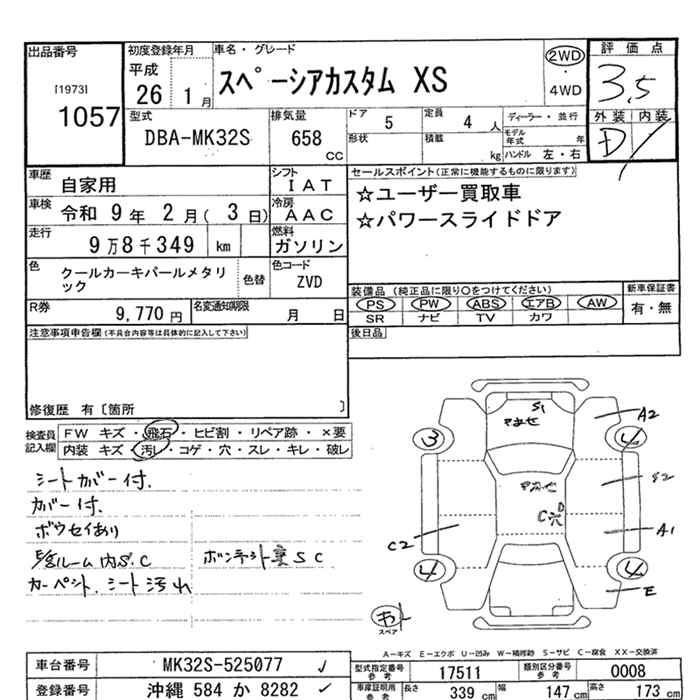 出品番号
[1973]
1057
初度登録年月
平成
26 1 月
車名・グレード
スペーシアカスタム XS
2WD
・
4WD
評価点
3.5
外装 内装
D
型式
DBA-MK32S
排気量
658 CC
ドア 5
定員 4 人
形状
積載 kg
ディーラー・並行
モデル年式 年
ハンドル 左・右
車歴 自家用
シフト IAT
車検 令和 9 年 2 月( 3 日)
冷房 AAC
走行 9 万 8 千 349 km
燃料 ガソリン
色 クールカーキパールメタリック
色替
色コード ZVD
R券 9,770 円
名変通知期限 月 日
セールスポイント(正常に機能するものに限ります)
☆ユーザー買取車
☆パワースライドドア
装備品 (純正品に限り○をつけてください)
PS PW ABS エアB AW
SR ナビ TV カワ
新車保証書
有・無
後日品
注意事項申告欄(不具合内容等は具体的に記入して下さい)
修復歴 有〔箇所 〕
検査員記入欄
FW キズ・飛石・ヒビ割・リペア跡・×要
内装 キズ・汚レ・コゲ・穴・スレ・キレ・破レ
シートカバー付.
カバー付.
ボウセイあり
ルーム内S.C
SC
カーペット.シート汚れ
S1
A2
3
4
C
穴
D
A1
C2
4
4
E
スペア
A-キズ E-エクボ U-凹み W-補修跡 S-サビ C-腐食 XX-交換済
車台番号 MK32S-525077
登録番号 沖縄 584 か 8282
型式指定番号 参考 17511
類別区分番号 参考 0008
車庫証明用 参考
長さ 339 cm
幅 147 cm
高さ 173 cm